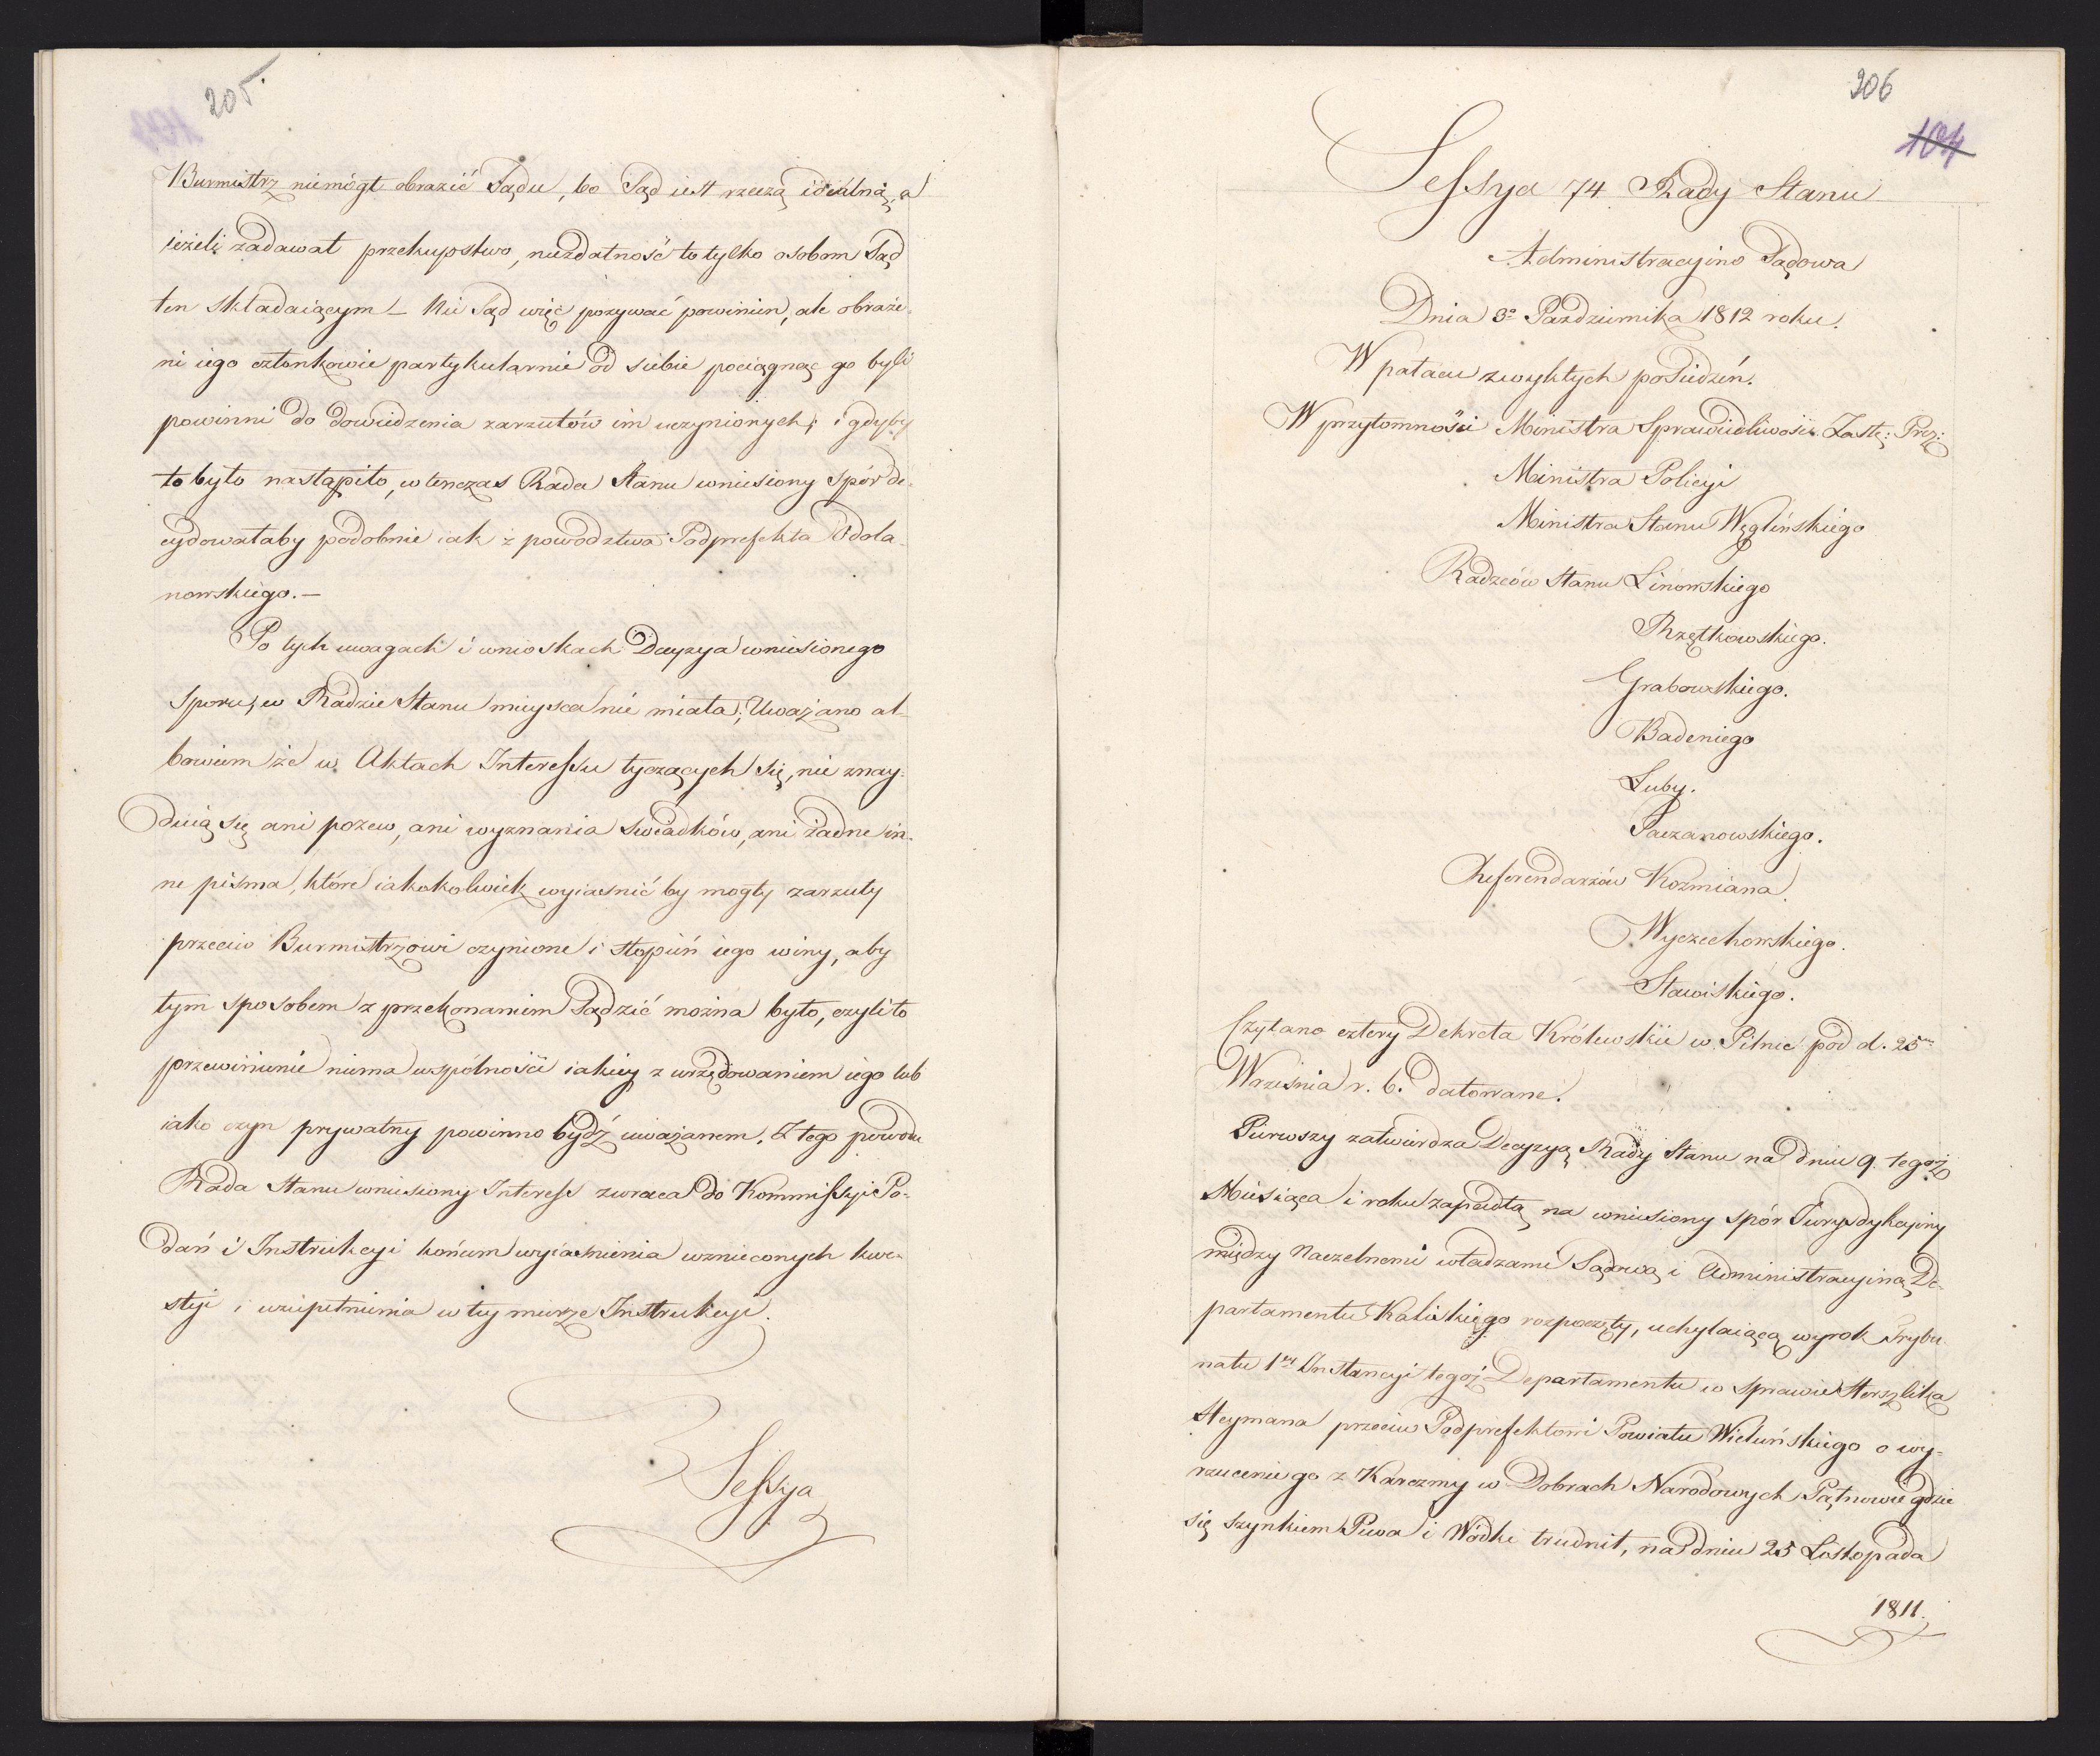 205.
Burmistrz niemógł obrazić Sądu, bo Sąd iest rzeczą idealną, a
ieżeli zadawał przekupstwo, niezdatność to tylko osobom Sąd
ten składaiącym – Nie Sąd więc pozywać powinien, ale obraże-
ni iego członkowie partykularnie od siebie pociągnąć go byli
powinni do dowiedzenia zarzutów im uczynionych; i gdyby
to było nastąpiło, w tenczas Rada Stanu wniesiony spór de-
cydowałaby podobnie iak z powodztwa Podprefekta Odola-
nowskiego. –
Po tych uwagach i wnioskach Decyzya wniesionego
sporu, w Radzie Stanu mieysca nie miała; Uważano al-
bowiem że w Aktach Interessu tyczących się, nie znay-
duią się ani pozew, ani wyznania swiadków, ani żadne in-
ne pisma, które iakokolwiek wyiasnić by mogły zarzuty
przeciw Burmistrzowi czynione i stopień iego winy, aby
tym sposobem z przekonaniem Sądzić można było, czyli to
przewinienie niema wspólności iakiey z urzędowaniem iego lub
iako czyn prywatny powinno bydź uważanem. Z tego powodu
Rada Stanu wniesiony Interess zwraca do Kommissyi Po-
dań i Instrukcyi końcem wyiasnienia wznieconych kwe-
styi i uzupełnienia w tey mierze Instrukcyi.
Sessya
206
104
Sessya 74 Rady Stanu
Administracyino Sądowa
Dnia 3º Pazdziernika 1812 roku.
W pałacu zwykłych posiedzeń.
W przytomności Ministra Sprawiedliwości Zastę: Prez:
Ministra Policyi
Ministra Stanu Węglińskiego
Radzców Stanu Linowskiego
Rzętkowskiego.
Grabowskiego.
Badeniego
Luby.
Paczanowskiego.
Referendarzów Kozmiana.
Wyczechowskiego.
Stawiskiego.
Czytano cztery Dekreta Królewskie w Pilnic pod d. 25
Września r. b. datowane.
Pierwszy zatwierdza Decyzyą Rady Stanu na dniu 9. tegoż
Miesiąca i roku zapadłą na wniesiony spór Jurysdykcyiny
między Naczelnemi władzami Sądową i Administracyiną De-
partamentu Kaliskiego rozpoczęty, uchylaiącą wyrok Trybu-
nału 1ey Instancyi tegoż Departamentu w sprawie Herszlika
Heymana przeciw Podprefektowi Powiatu Wieluńskiego o wy-
rzucenie go z Karczmy w Dobrach Narodowych Pątnowie gdzie
się szynkiem Piwa i Wódki trudnił, na dniu 25 Listopada
1811.